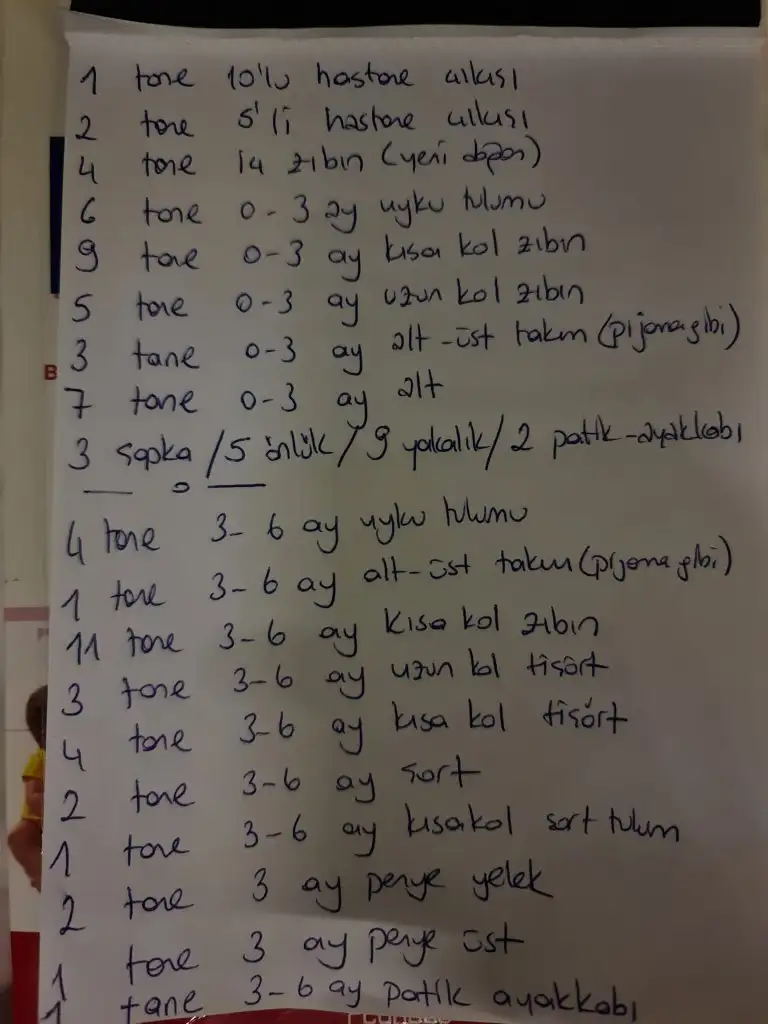 1 tane 10'lu hastane çıkışı
2 tane 5'li hastane çıkışı
4 tane iç zıbın (yeni doğan)
6 tane 0-3 ay uyku tulumu
9 tane 0-3 ay kısa kol zıbın
5 tane 0-3 ay uzun kol zıbın
3 tane 0-3 ay alt-üst takım (pijama gibi)
7 tane 0-3 ay alt
3 şapka / 5 önlük / 9 yakalık / 2 patik-ayakkabı
4 tane 3-6 ay uyku tulumu
1 tane 3-6 ay alt-üst takım (pijama gibi)
11 tane 3-6 ay kısa kol zıbın
3 tane 3-6 ay uzun kol tişört
4 tane 3-6 ay kısa kol tişört
2 tane 3-6 ay şort
1 tane 3-6 ay kısa kol şort tulum
2 tane 3 ay penye yelek
1 tane 3 ay penye üst
1 tane 3-6 ay patik ayakkabı